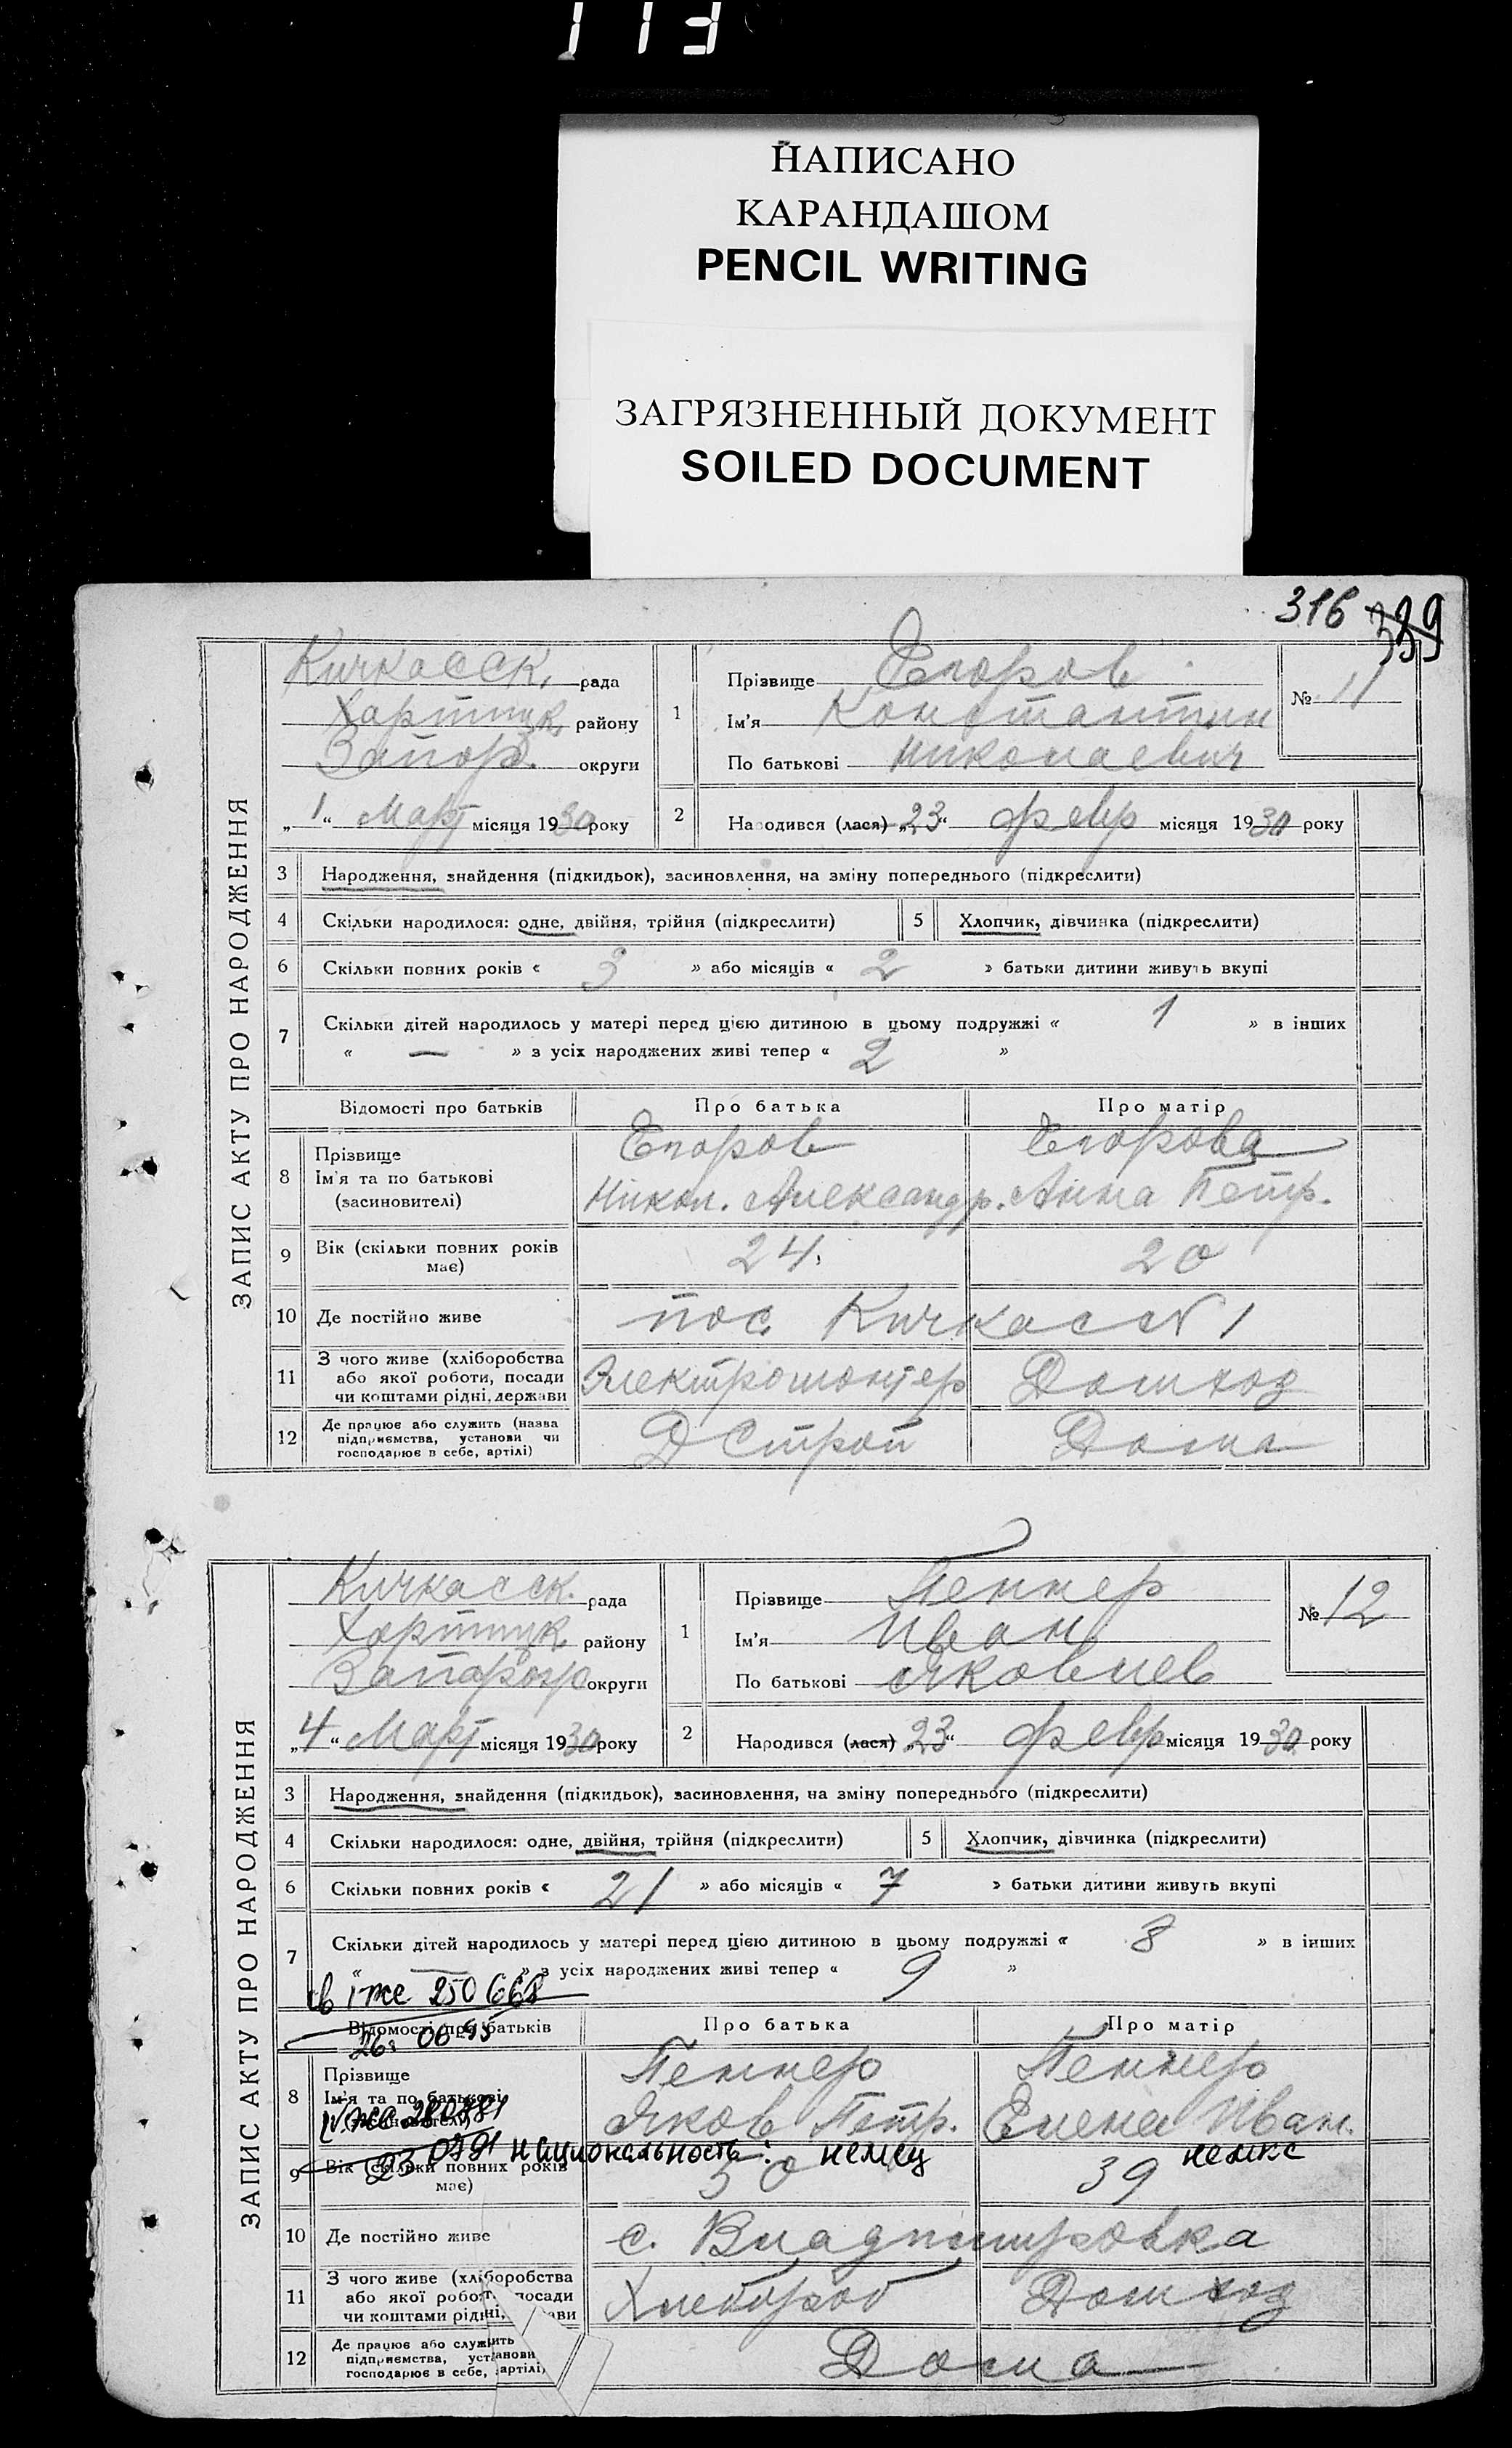 113
НАПИСАНО
КАРАНДАШОМ
PENCIL WRITING
ЗАГРЯЗНЕННЫЙ ДОКУМЕНТ
SOILED DOCUMENT
316 339
ЗАПИС АКТУ ПРО НАРОДЖЕННЯ
Кичкасск. рада
Хортицк району
Запор. округи
„1“ Март місяця 1930 року
1
Прізвище Егоров
Ім'я Константин
По батькові Николаевич
№ 11
2 Народився (лася) „23“ февр місяця 1930 року
3 Народження, знайдення (підкидьок), засиновлення, на зміну попереднього (підкреслити)
4 Скільки народилося: одне, двійня, трійня (підкреслити) 5 Хлопчик, дівчинка (підкреслити)
6 Скільки повних років « 3 » або місяців « 2 » батьки дитини живуть вкупі
7 Скільки дітей народилось у матері перед цією дитиною в цьому подружжі « 1 » в інших
« — » з усіх народжених живі тепер « 2 »
Відомості про батьків Про батька Про матір
8 Прізвище Егоров Егорова
Ім'я та по батькові Никол. Александр. Анна Петр.
(засиновителі)
9 Вік (скільки повних років має) 24. 20
10 Де постійно живе пос. Кичкасс № 1
11 З чого живе (хліборобства або якої роботи, посади чи коштами рідні, держави Электромонтер Домхоз
12 Де працює або служить (назва підприємства, установи чи господарює в себе, артілі) Д Строй Дома
ЗАПИС АКТУ ПРО НАРОДЖЕННЯ
Кичкасск. рада
Хортицк району
Запорож округи
„4“ Март місяця 1930 року
1
Прізвище Пеннер
Ім'я Иван
По батькові Яковлев
№ 12
2 Народився (лася) „23“ февр місяця 1930 року
3 Народження, знайдення (підкидьок), засиновлення, на зміну попереднього (підкреслити)
4 Скільки народилося: одне, двійня, трійня (підкреслити) 5 Хлопчик, дівчинка (підкреслити)
6 Скільки повних років « 21 » або місяців « 7 » батьки дитини живуть вкупі
7 Скільки дітей народилось у матері перед цією дитиною в цьому подружжі « 8 » в інших
« — » з усіх народжених живі тепер « 9 »
250668
Відомості про батьків Про батька Про матір
8 Прізвище Пеннер Пеннер
Ім'я та по батькові Яков Петр. Елена Иван.
(засиновителі)
национальность: немец немка
9 Вік (скільки повних років має) 50 39
10 Де постійно живе с. Владимировка
11 З чого живе (хліборобства або якої роботи, посади чи коштами рідні, держави Хлебороб Домхоз
12 Де працює або служить установи підприємства, господарює в себе, артілі) Дома